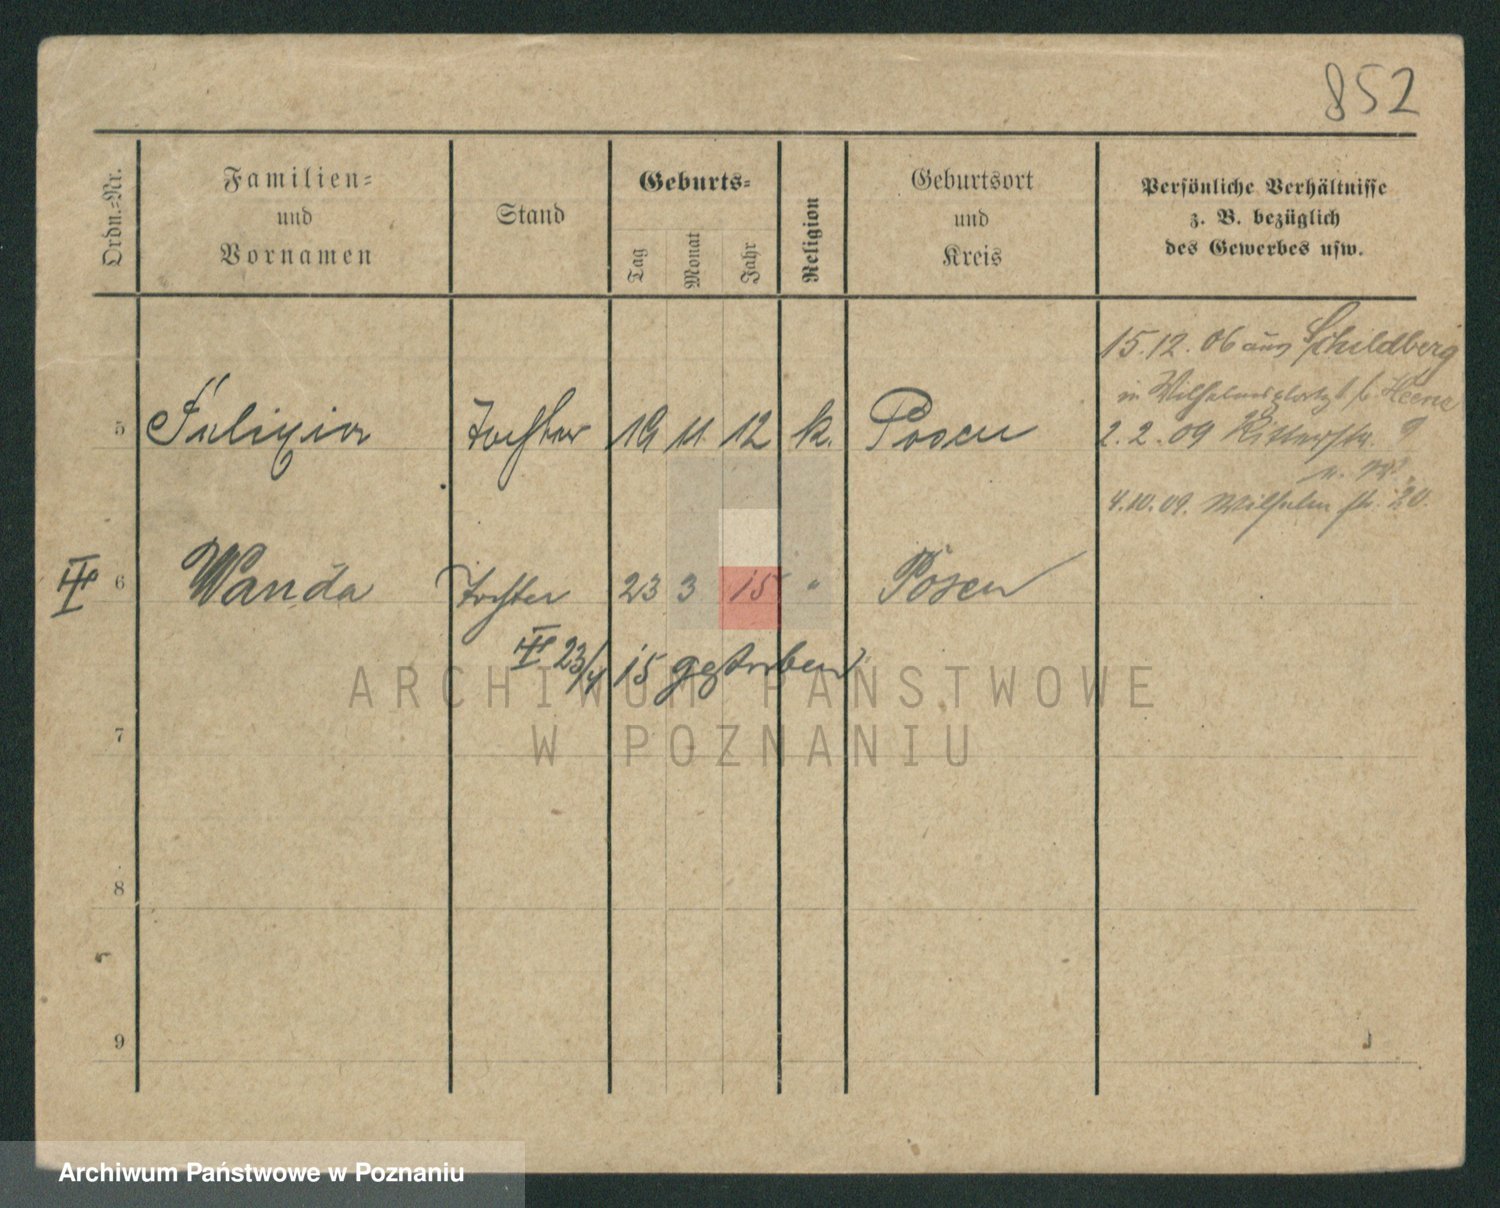 852
Ordn.-Nr.
Familien-
und
Vornamen
Stand
Geburts-
Tag
Monat
Jahr
Religion
Geburtsort
und
Kreis
Persönliche Verhältnisse
z. B. bezüglich
des Gewerbes usw.
15.12.06 aus Schildberg
in Wilhelmsplatz b. Heene
5 Felixia Tochter 19 11 12 k. Posen
2.2.09 Ritterstr. 9
4.10.09. Wilhelm str. 20.
III 6 Wanda Tochter 23 3 15 " Posen
III 23/4 15 gestorben
ARCHIWUM PAŃSTWOWE
W POZNANIU
7
8
9
Archiwum Państwowe w Poznaniu